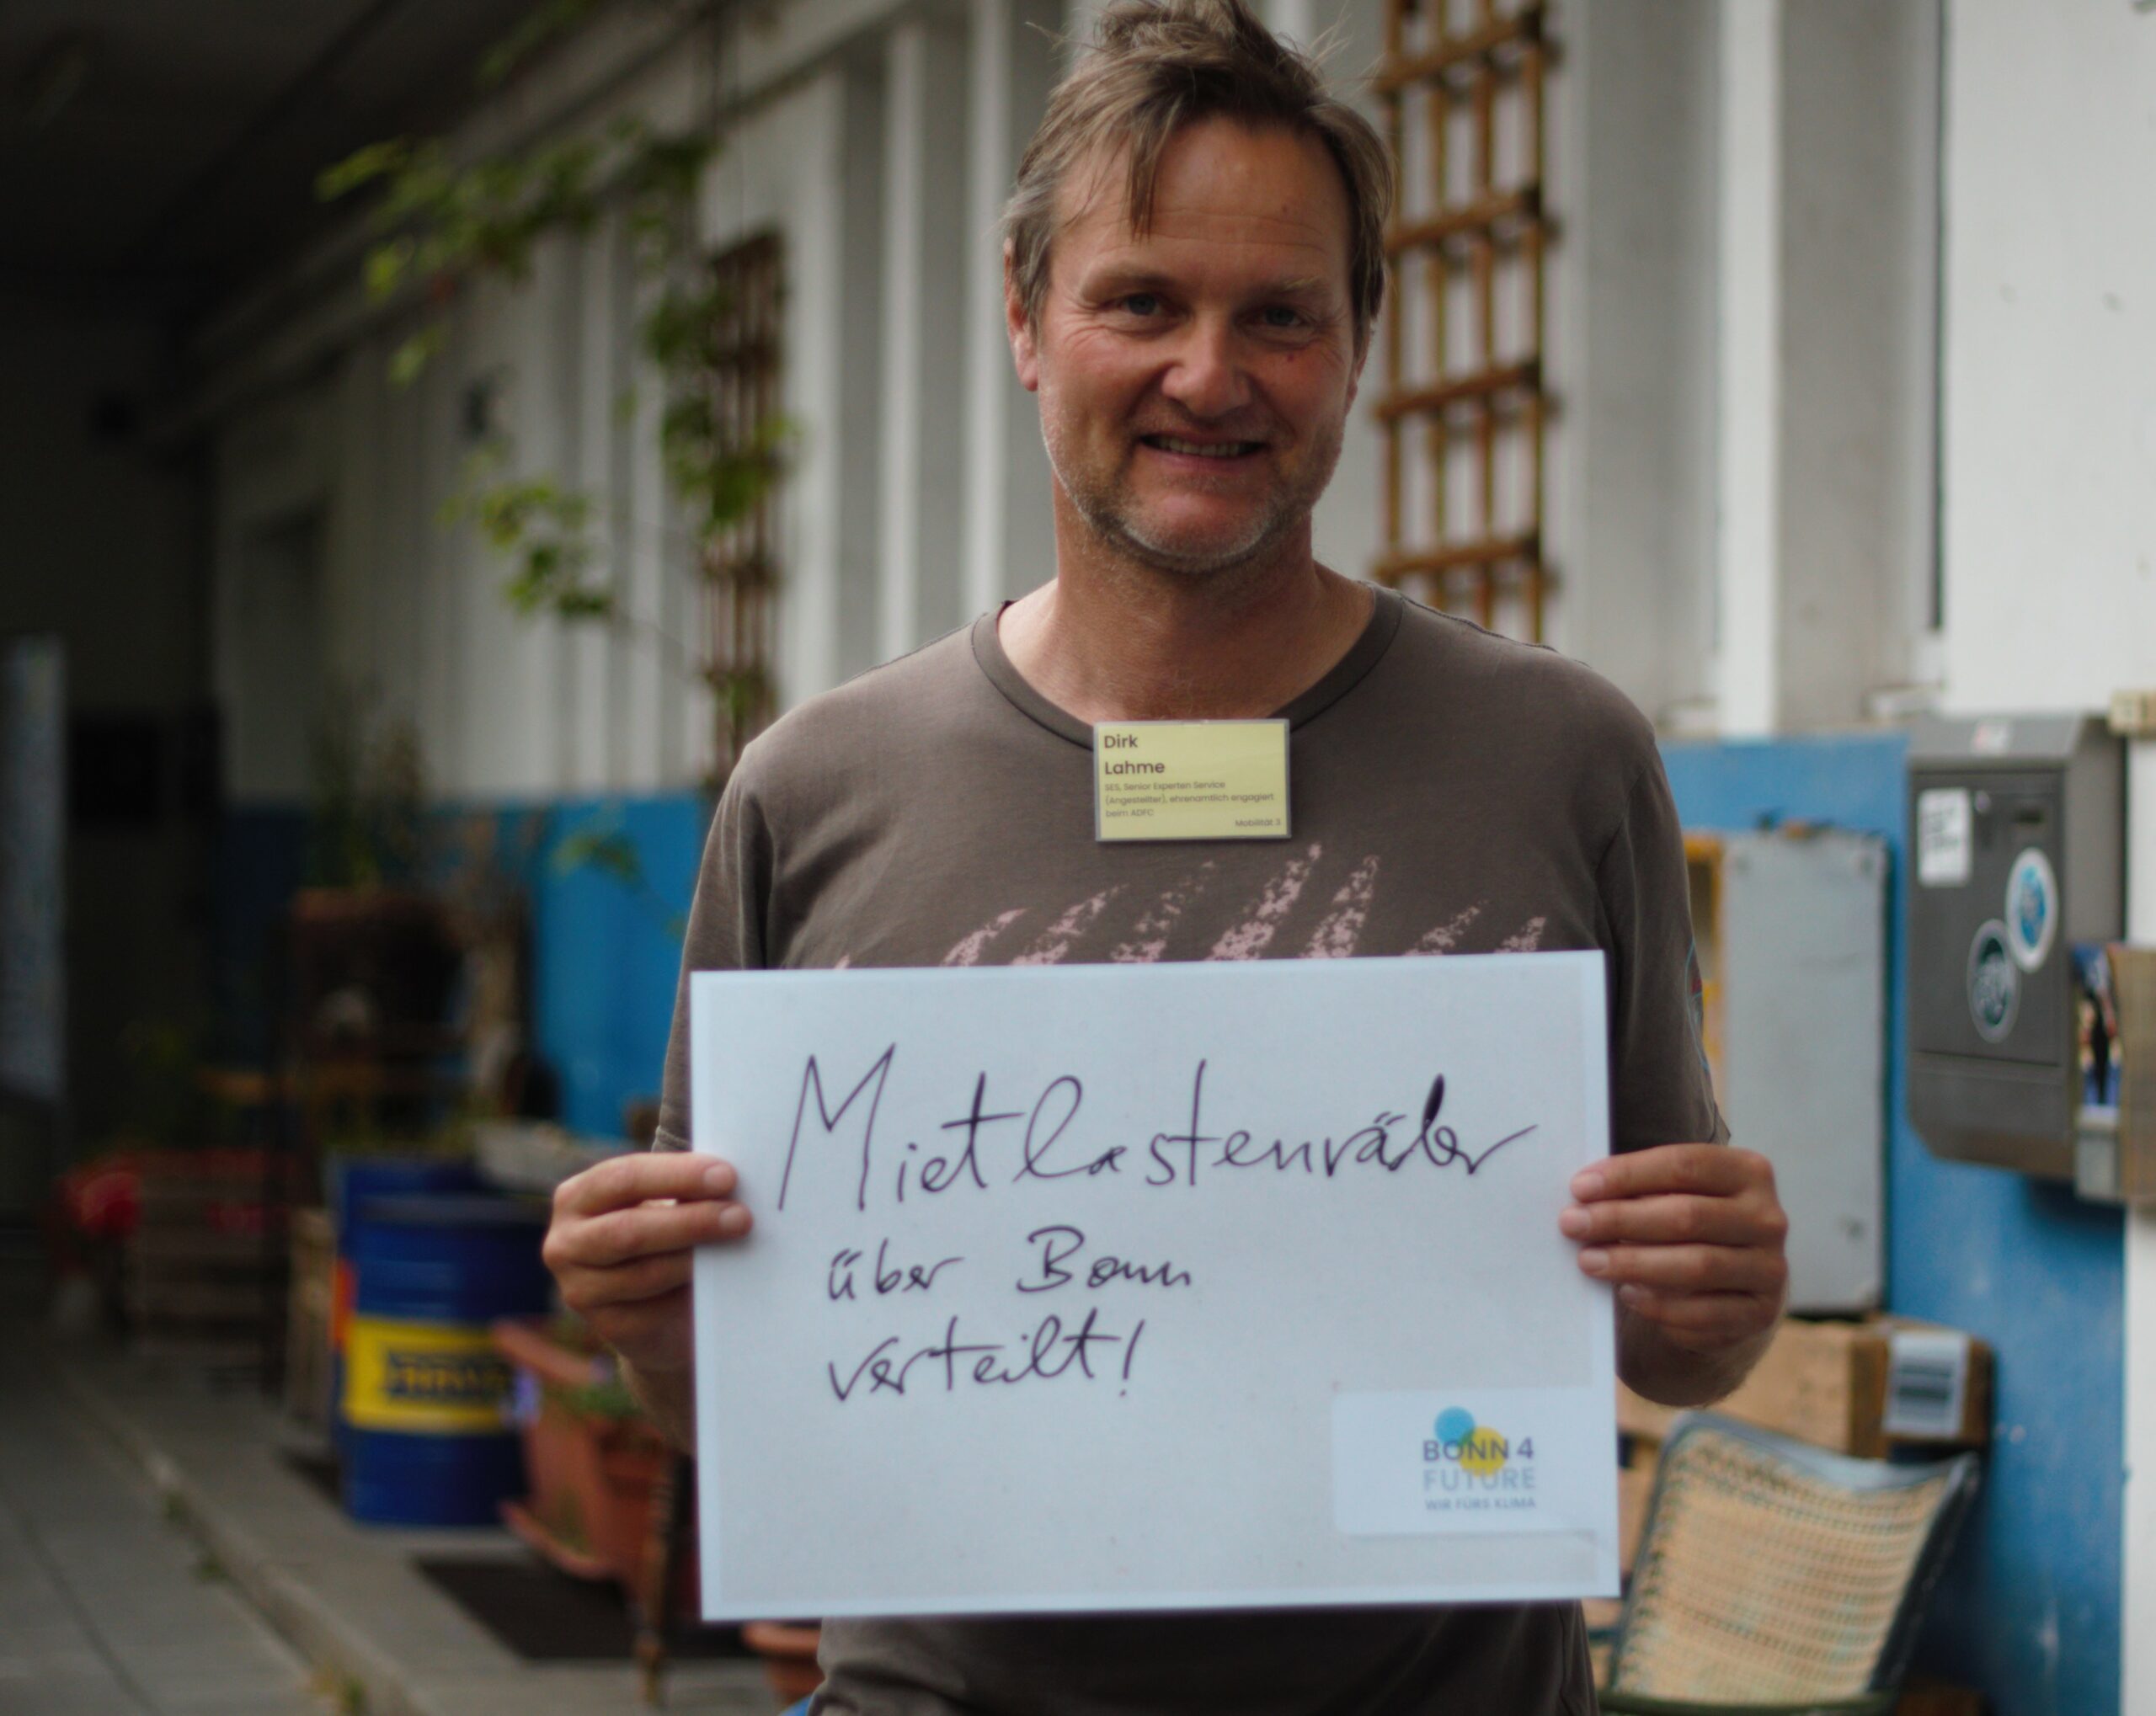 Dirk
Lahme
SES, Senior Experten Service
(Angestellter), ehrenamtlich engagiert
beim ADFC
Mobilität 3
Mietlastenräder
über Bonn
verteilt!
BONN 4
FUTURE
WIR FÜRS KLIMA